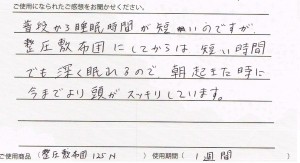 ご使用になられたご感想をお聞かせください。
普段から睡眠時間が短かいのですが
整圧敷布団にしてからは短い時間
でも深く眠れるので朝起きた時に
今までより頭がスッキリしています。
ご使用商品(整圧敷布団125N)使用期間(1週間